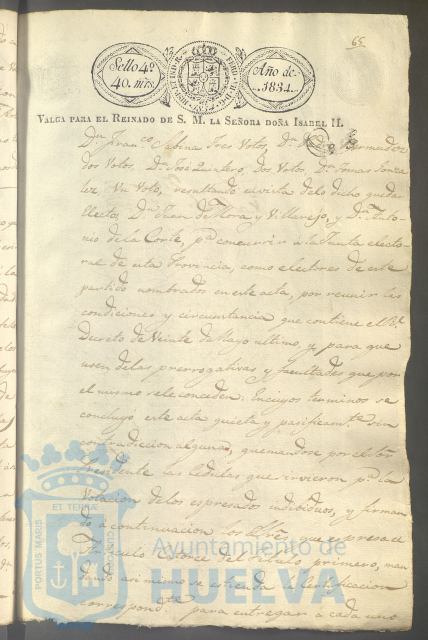 65
Sello 4º
40. mrs.
Año de
1834.
VALGA PARA EL REINADO DE S. M. LA SEÑORA DOÑA ISABEL II.
Dn. Franco. Sabina tres Votos, Dn. Bermudez
dos Votos, Dn. José Quintero, dos Votos, Dn. Tomas Gonza
lez Un Voto, resultando en vista de lo dicho quedar
electos Dn. Juan de Mora y Villarejo, y Dn. Anto-
nio de la Corte, pa. concurrir a la Junta electo-
ral de esta Provincia, como electores de este
partido nombrados en este acta, por reunir las
condiciones y circunstancia que contiene el Rl.
Decreto de Veinte de Mayo ultimo, y para que
usen de las prerrogativas y facultades que por
el mismo se le conceden. En cuyos terminos se
concluyó este acta quieta y pacificamte. sin
contradiccion alguna, quemandose por el Sor.
Presidente las Cedulas que sirvieron pa. la
Votacion de los espresados individuos, y firman
do a continuacion los Sres. que espresa el
Articulo catorce del titulo primero, man
dando asi mismo se estienda la Certificacion
correspondte. para entregar a cada uno
PORTUS MARIS ET TERRAE
Ayuntamiento de
HUELVA